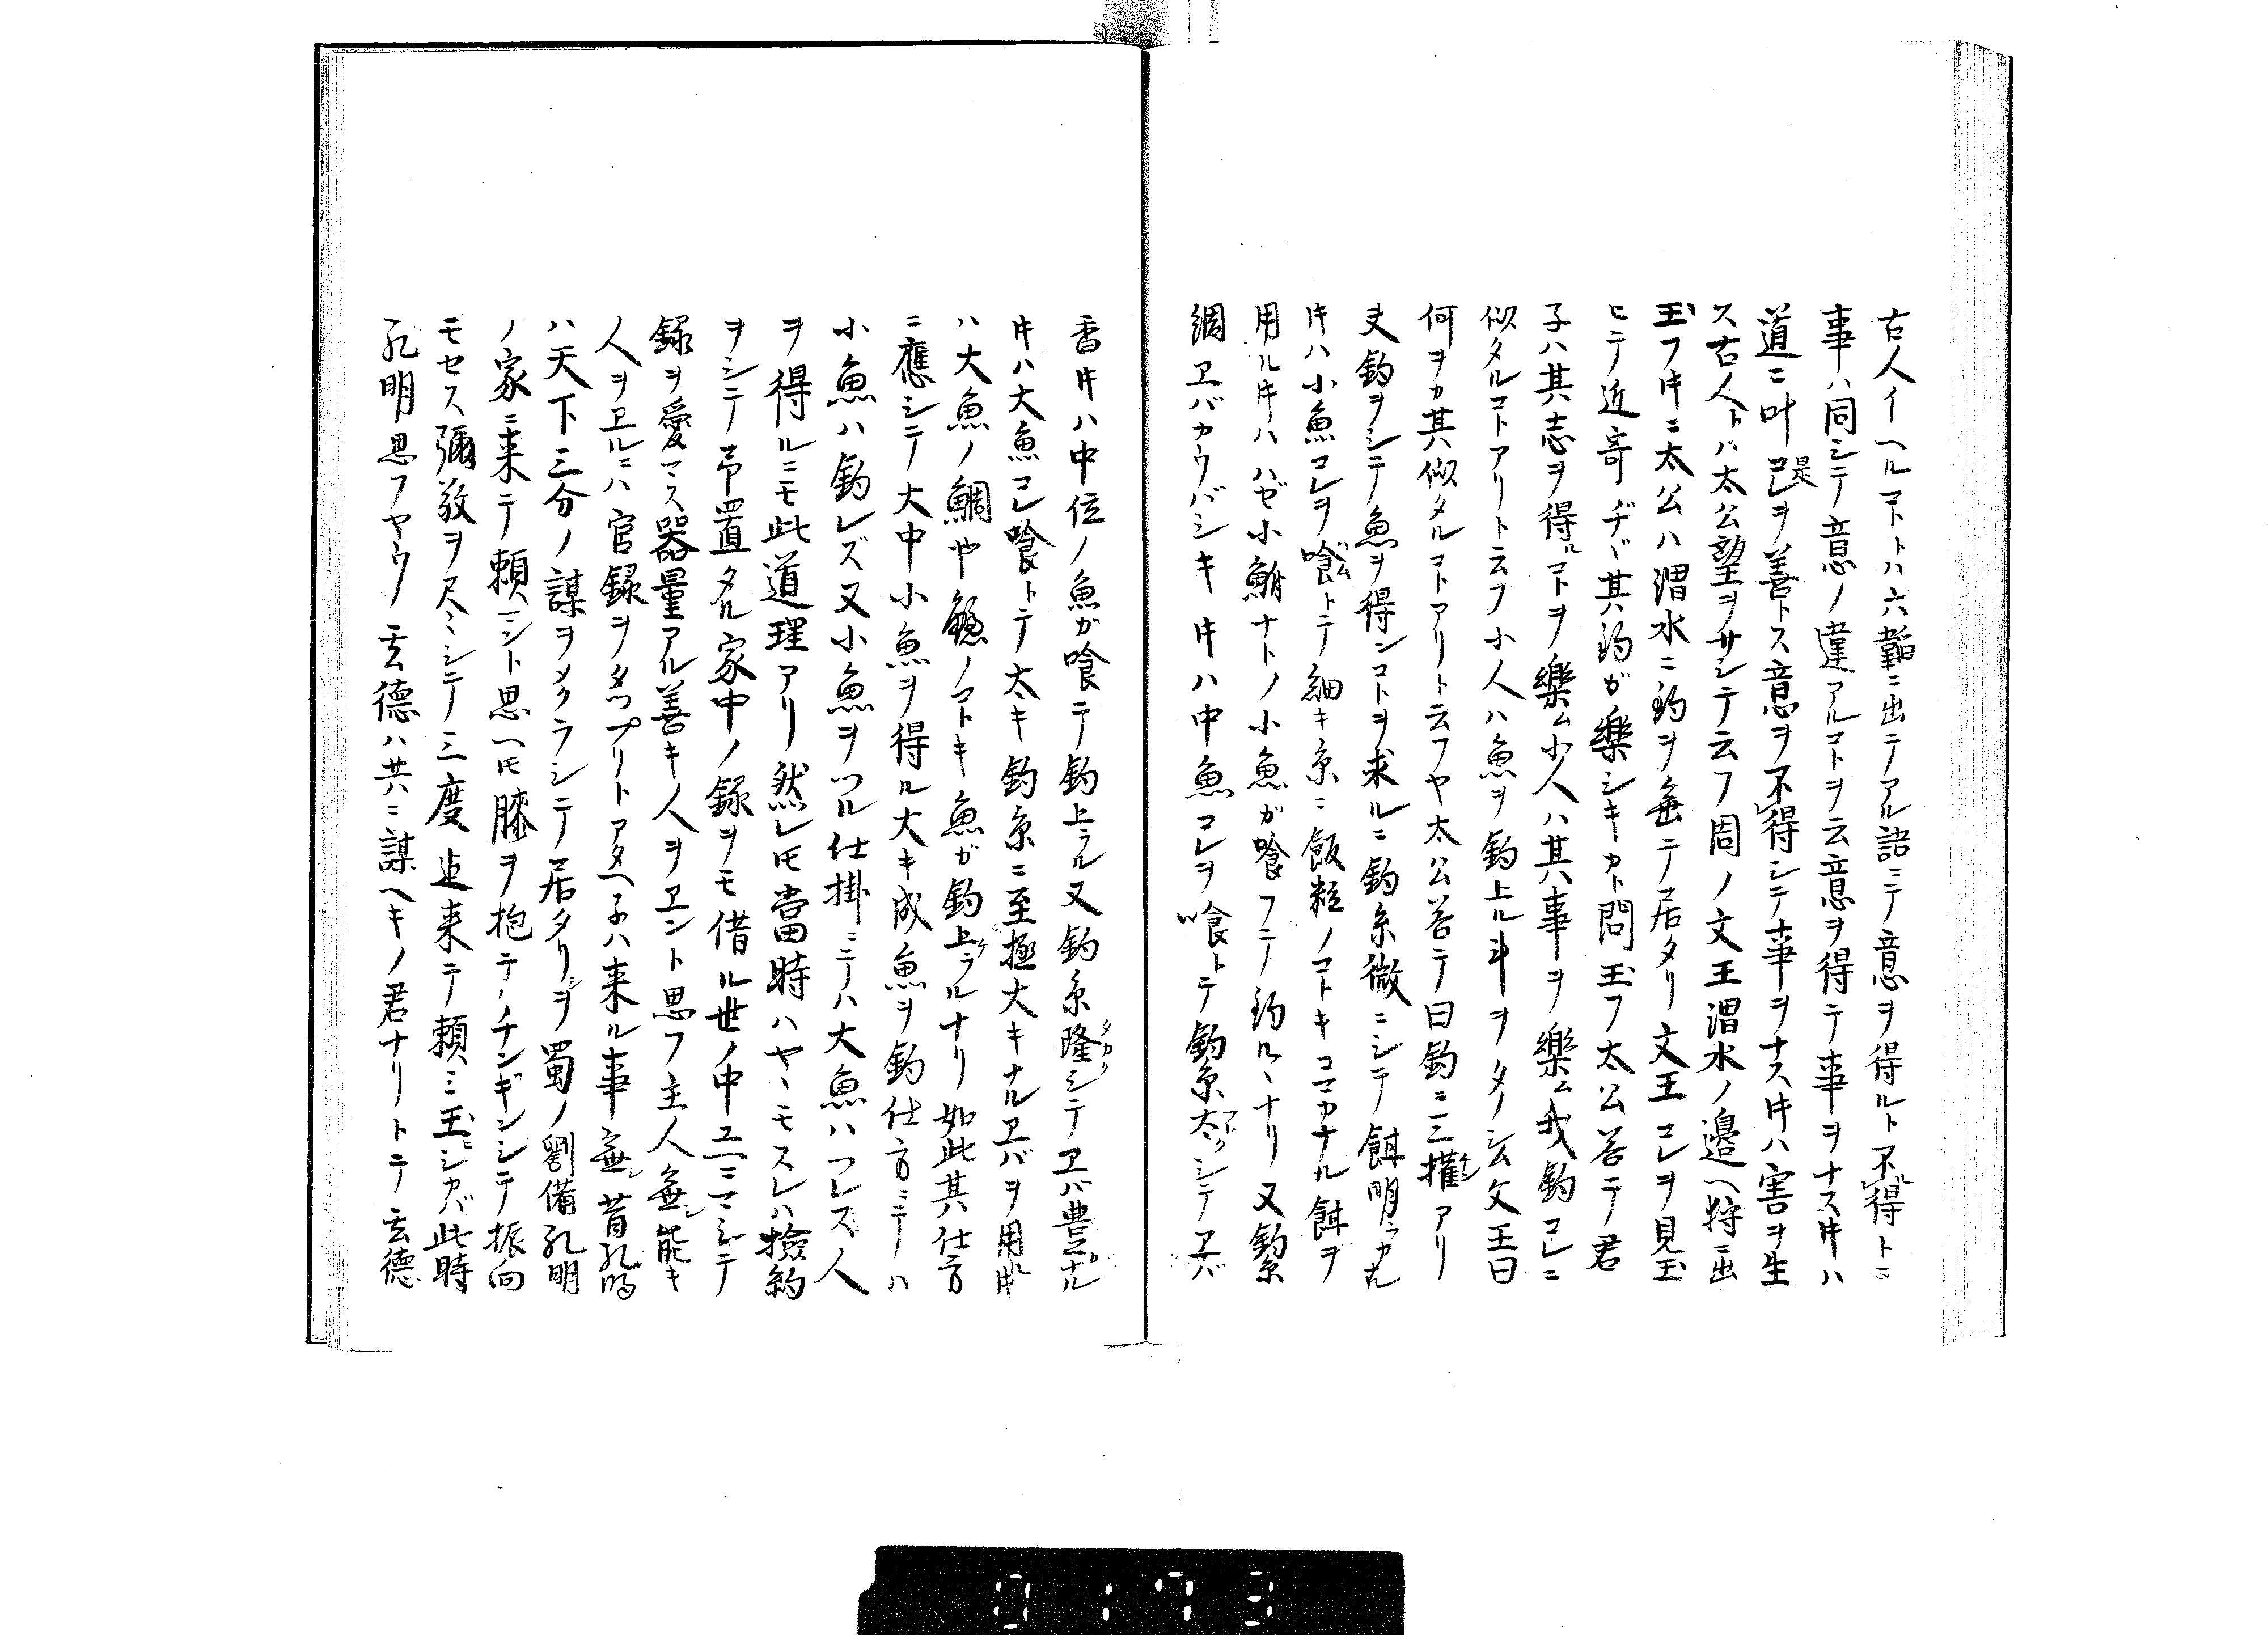 古人イヘルヿトハ六韜ニ出テアル語ニテ意ヲ得ルト不得トニ
事ハ同シテ意ノ違アルヿヲ云意ヲ得テ事ヲナス𪜈ハ
道ニ叶是コレヲ善トス意ヲ不得シテ事ヲナス𪜈ハ害ヲ生
ス古人トハ太公望ヲサシテ云フ周ノ文王渭水ノ邊ヘ狩ニ出
玉フ𪜈ニ太公ハ渭水ニ釣ヲ垂テ居タリ文王コレヲ見玉
ヒテ近寄ヂヾ其釣ガ樂シキカト問玉フ太公荅テ君
子ハ其志ヲ得ルヿヲ樂ム小人ハ其事ヲ樂ム我釣コレニ
似タルヿアリト云フ小人ハ魚ヲ釣上ル斗ヲタノシム文王曰
何ヲカ其似タルヿアリト云フヤ太公荅テ曰釣ニ三權アリ
夫釣ヲシテ魚ヲ得ンコトヲ求ルニ釣糸微ニシテ餌明ラカナル
𪜈ハ小魚コレヲ喰トテ細キ糸ニ飯粒ノヿキコマカナル餌ヲ
用ル𪜈ハハゼ小鮒ナトノ小魚ガ喰フテ釣ルヽナリ又釣糸
綢ヱバカウバシキ𪜈ハ中魚コレヲ喰トテ釣糸太クシテヱバ
香𪜈ハ中位ノ魚ガ喰テ釣上ラル又釣糸隆タカクシテヱバ豊ナル
𪜈ハ大魚コレ喰トテ太キ釣糸ニ至極大キナルヱバヲ用ル𪜈
ハ大魚ノ鯛ヤ鱸ノヿキ魚ガ釣上ラルナリ如此其仕方
ニ應シテ大中小魚ヲ得ル大キ成魚ヲ釣仕方ニテハ
小魚ハ釣レズ又小魚ヲツル仕掛ニテハ大魚ハツレズ人
ヲ得ルニモ此道理アリ然レ𪜈當時ハヤヽモスレハ撿約
ヲシテ吊置タル家中ノ録ヲモ借ル世ノ中ユニマシテ
録ヲ愛マス器量アル善キ人ヲヱント思フ主人無シ能キ
人ヲヱルニハ官録ヲタツプリトアタヘ子ハ来ル事無シ昔孔明
ハ天下三分ノ謀ヲメクラシテ居タリシヲ蜀ノ劉備孔明
ノ家ニ来テ頼ミシト思ヘ𪜈膝ヲ抱テノチンギンシテ振向
モセス彌敬ヲ尽シテ三度迠来テ頼ミ玉ヒシカバ此時
孔明思フヤウ玄德ハ共ニ謀ヘキノ君ナリトテ玄德